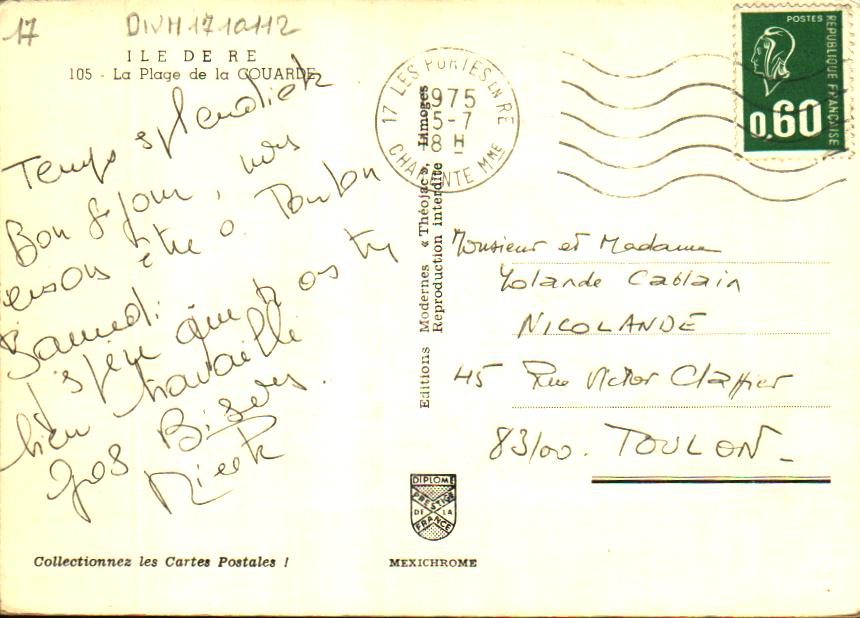 17 DIVH 17 10112
ILE DE RE
105 - La Plage de la COUARDE
Temps splendide
Bon séjour, nous
serons être à Toulon
Samedi
J'espère que tu as
bien travaillé
Gros Bisous
17 LES PORTES EN RE
1975
5-7
18 H
CHARENTE MME
POSTES
REPUBLIQUE FRANÇAISE
0,60
Editions Modernes « Théojac », Limoges
Reproduction interdite
Monsieur et Madame
Yolande Cablain
NICOLANDE
45 Rue Victor Clappier
83100. TOULON_
DIPLOME
PRESTIGE
DE LA
FRANCE
Collectionnez les Cartes Postales !
MEXICHROME